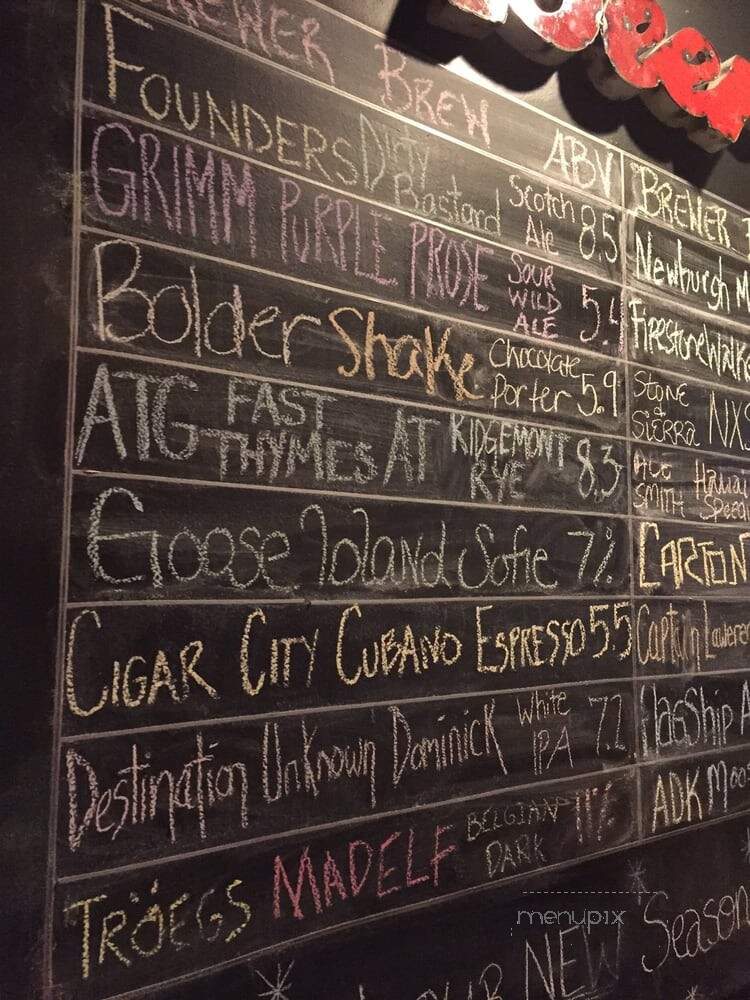 BREWER BREW ABV
FOUNDERS Dirty Bastard Scotch Ale 8.5
GRIMM PURPLE PROSE SOUR WILD ALE 5.4
Bolder Shake Chocolate Porter 5.9
ATG FAST THYMES AT RIDGEMONT RYE 8.3
Goose Island Sofie 7%
CIGAR CITY CUBANO ESPRESSO 5.5
Destination Unknown Dominick White IPA 7.2
TRÖEGS MADELF BELGIAN DARK 11%
BREWER
Newburgh M
FIRESTONE WALKE
STONE & SIERRA NXS
ALE SMITH Hawaii Speed
CARTON
Captain Lawren
FlagShip A
ADK Moo
Beer
OUR NEW Season
menupix